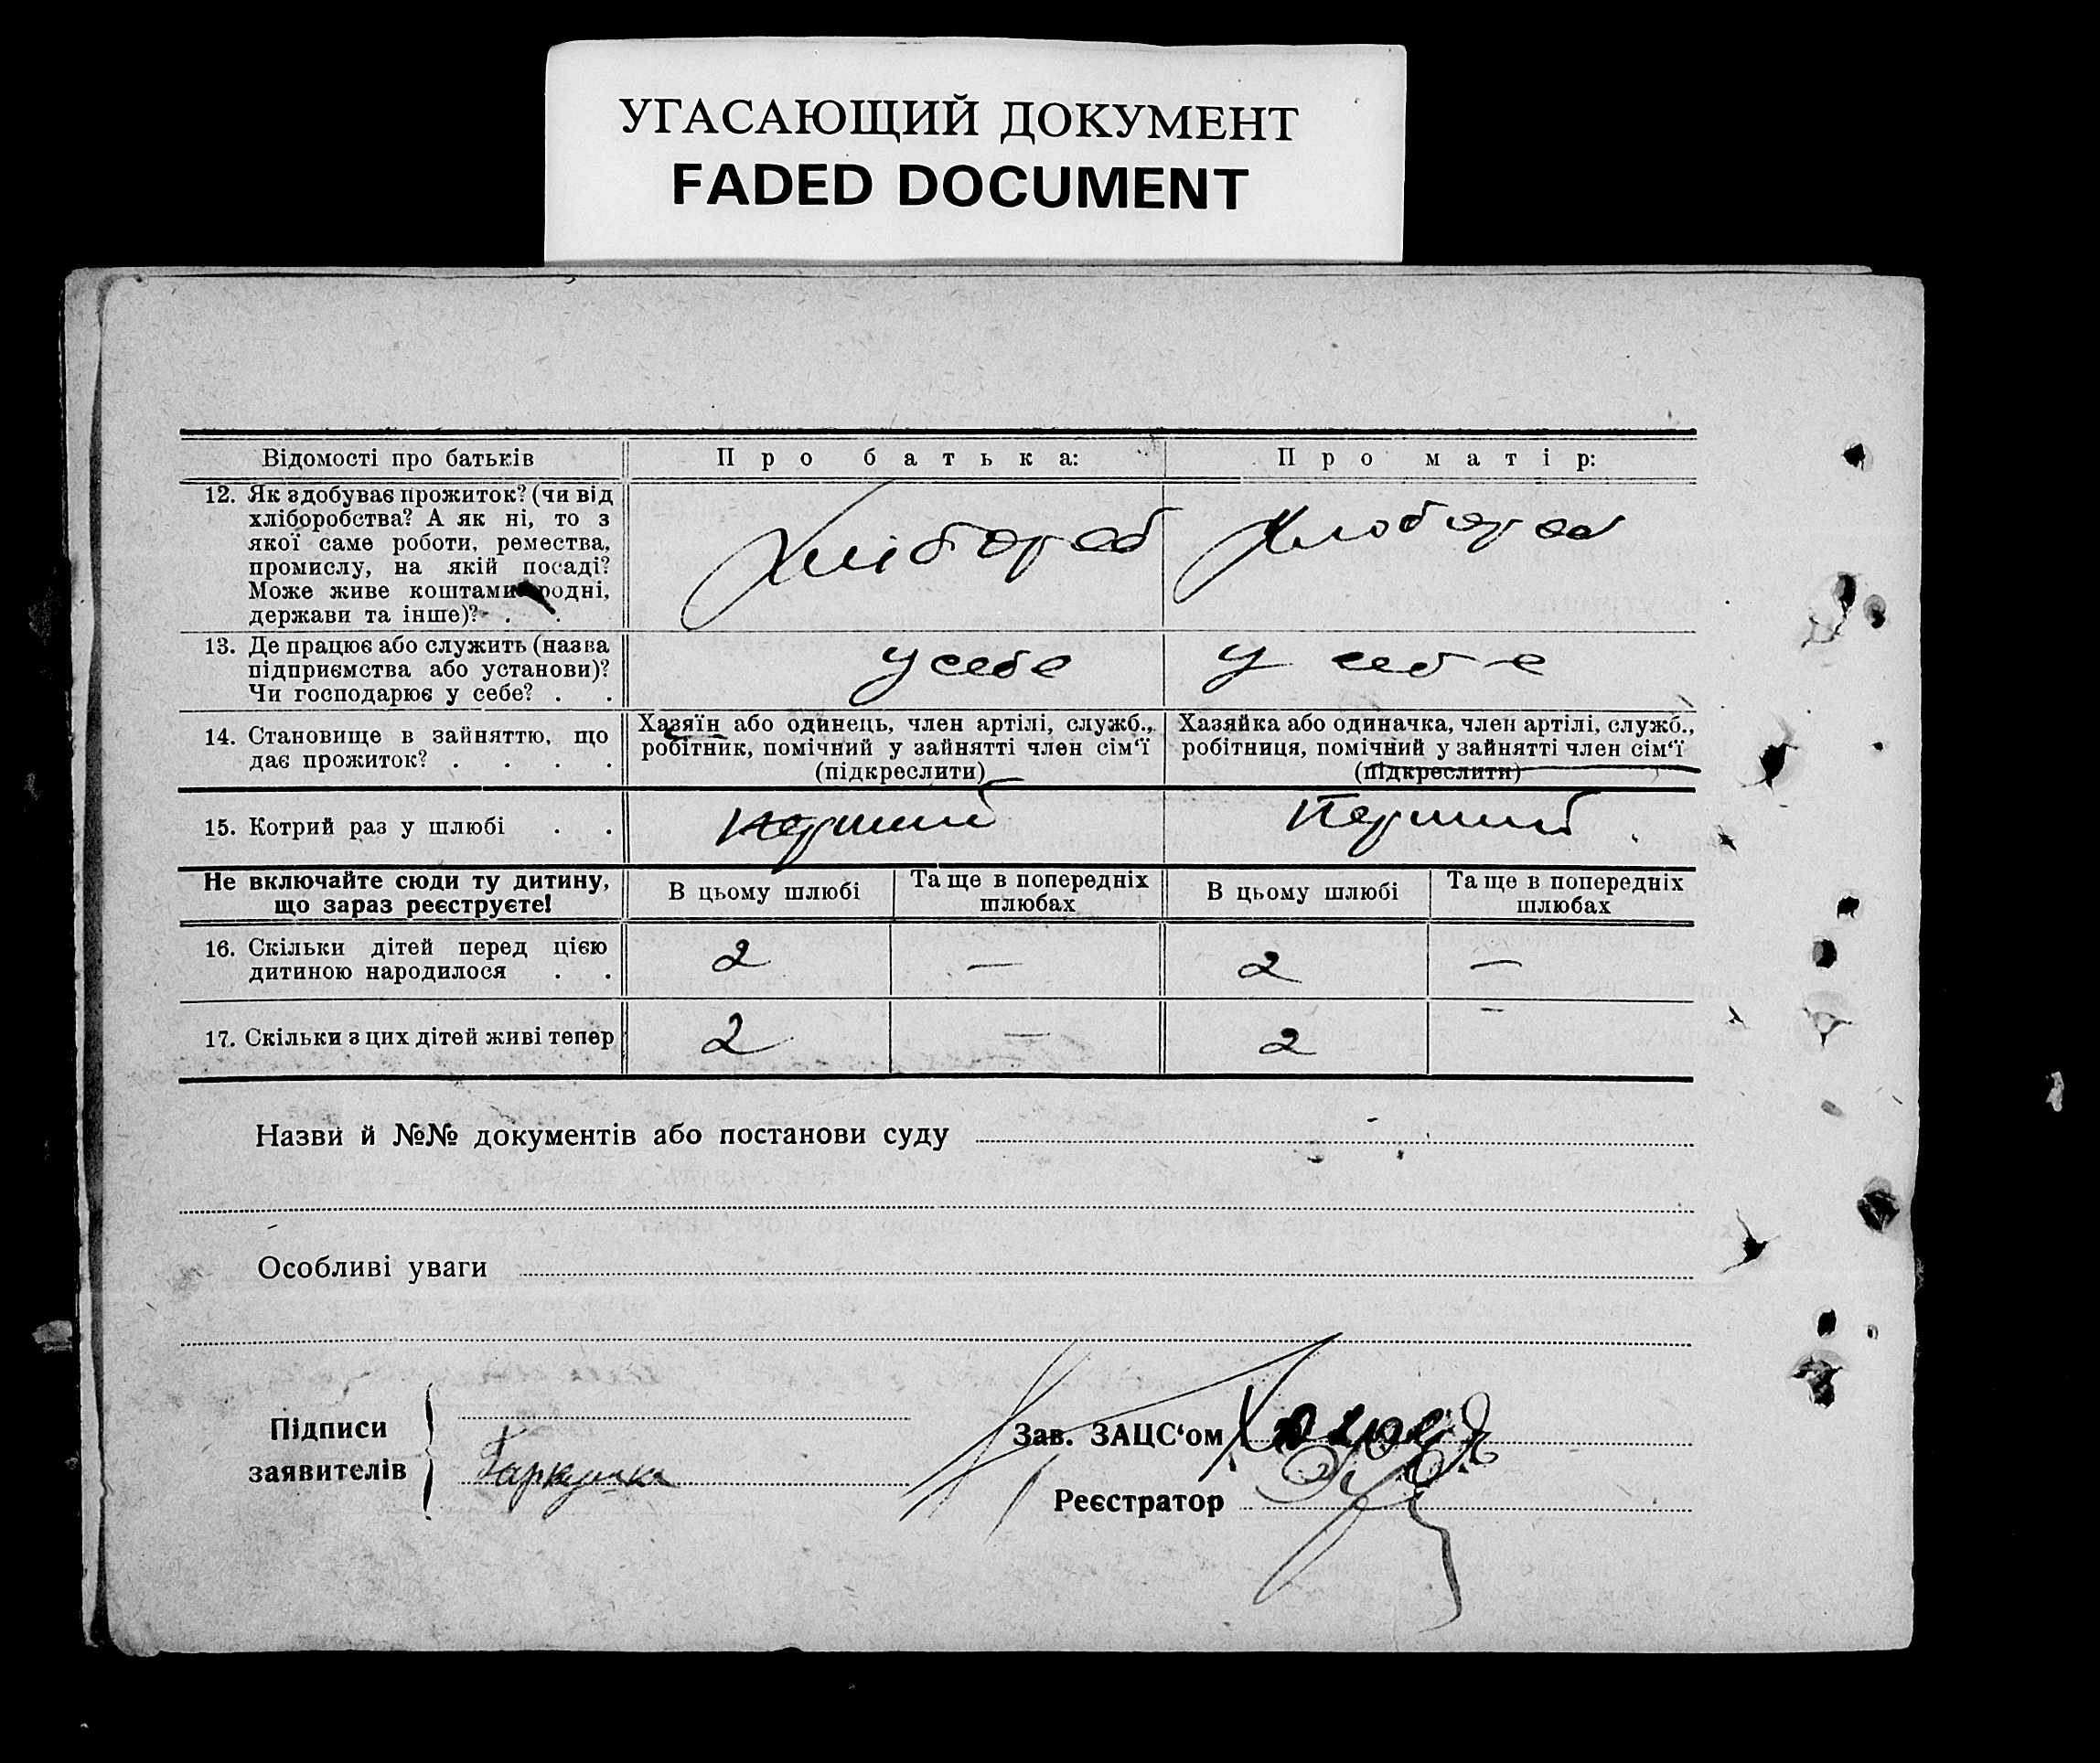 УГАСАЮЩИЙ ДОКУМЕНТ
FADED DOCUMENT
Відомості про батьків
Про батька:
Про матір:
12. Як здобуває прожиток? (чи від
хліборобства? А як ні, то з
якої саме роботи, ремества,
промислу, на якій посаді?
Може живе коштами родні,
держави та інше)? . .
Хлібороб
Хлебороб
13. Де працює або служить (назва
підприємства або установи)?
Чи господарює у себе? . .
у себе
у себе
14. Становище в зайняттю, що
дає прожиток? . . . .
Хазяїн або одинець, член артілі, служб.,
робітник, помічний у зайнятті член сім‘ї
(підкреслити)
Хазяйка або одиначка, член артілі, служб.,
робітниця, помічний у зайнятті член сім‘ї
(підкреслити)
15. Котрий раз у шлюбі . .
перший
перший
Не включайте сюди ту дитину,
що зараз реєструєте!
В цьому шлюбі
Та ще в попередніх
шлюбах
В цьому шлюбі
Та ще в попередніх
шлюбах
16. Скільки дітей перед цією
дитиною народилося . .
2
—
2
—
17. Скільки з цих дітей живі тепер
2
—
2
–
Назви й №№ документів або постанови суду
Особливі уваги
Підписи
заявителів
Зав. ЗАЦС‘ом
Реєстратор